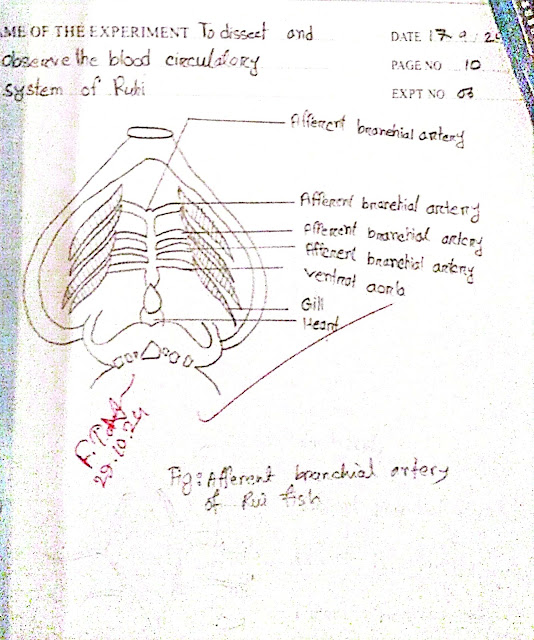 AME OF THE EXPERIMENT To dissect and
observe the blood circulatory
system of Ruhi
DATE 17 9
PAGE NO 10
EXPT NO 03
Afferent branchial artery
Afferent branchial artery
Afferent branchial artery
Afferent branchial artery
ventral aorta
Gill
Heart
29.10.24
Fig: Afferent branchial artery
of Rui fish